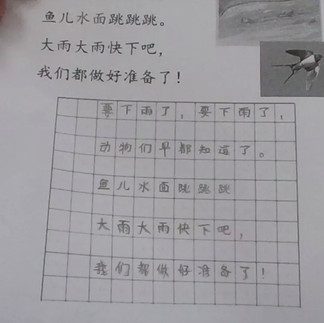 鱼儿水面跳跳跳。
大雨大雨快下吧，
我们都做好准备了！
要下雨了，要下雨了，
动物们早都知道了。
鱼儿水面跳跳跳
大雨大雨快下吧，
我们都做好准备了！